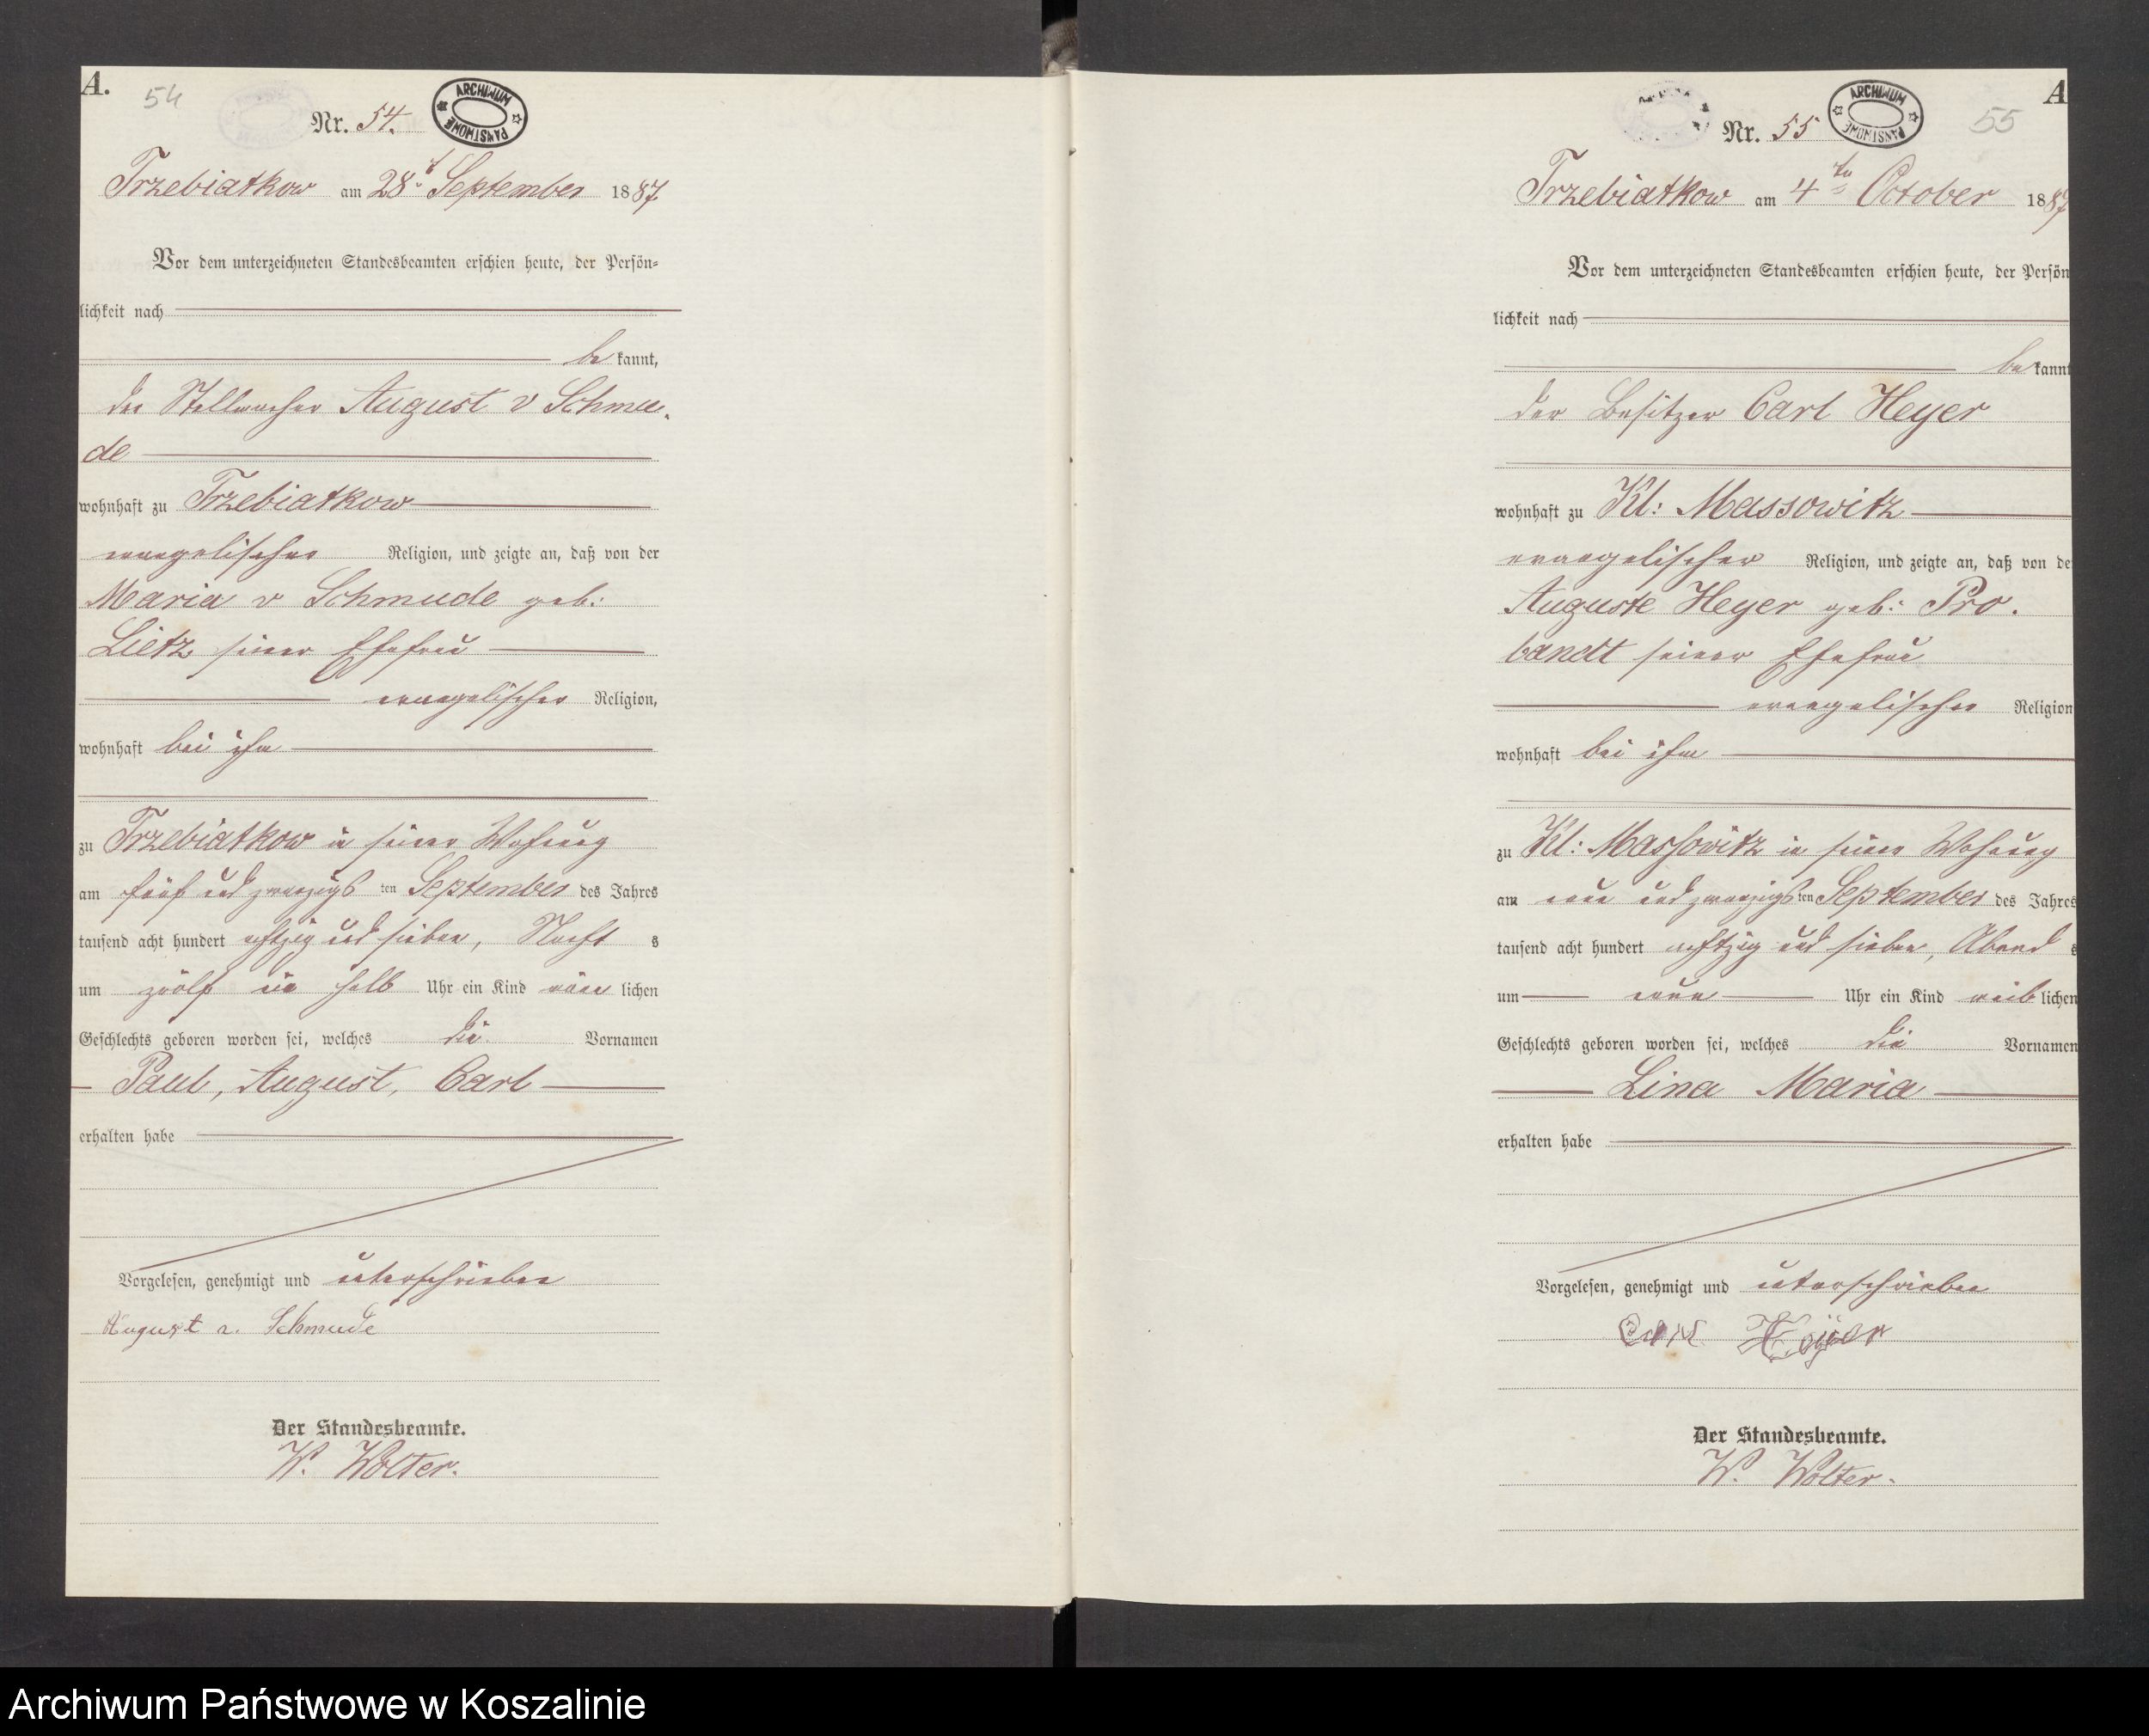 A.
54
Nr. 54.
ARCHIWUM PAŃSTWOWE
Trzebiatkow am 28t September 1887
Vor dem unterzeichneten Standesbeamten erschien heute, der Persön=
lichkeit nach
be kannt,
der Stellmacher August v Schmu-
de
wohnhaft zu Trzebiatkow
evangelischer Religion, und zeigte an, daß von der
Maria v Schmude geb:
Lietz seiner Ehefrau
evangelischer Religion,
wohnhaft bei ihm
zu Trzebiatkow in seiner Wohnung
am fünf und zwanzigs ten September des Jahres
tausend acht hundert achtzig und sieben, Nacht s
um zwölf ein halb Uhr ein Kind männ lichen
Geschlechts geboren worden sei, welches die Vornamen
Paul, August, Carl
erhalten habe
Vorgelesen, genehmigt und unterschrieben
August v. Schmude
Der Standesbeamte.
W. Wolter.
A
55
Nr. 55
ARCHIWUM PAŃSTWOWE
Trzebiatkow am 4ten October 1887
Vor dem unterzeichneten Standesbeamten erschien heute, der Persön
lichkeit nach
be kannt
der Besitzer Carl Heyer
wohnhaft zu Kl: Massowitz
evangelischer Religion, und zeigte an, daß von de
Auguste Heyer geb: Pro-
bandt seiner Ehefrau
evangelischer Religion
wohnhaft bei ihm
zu Kl: Massowitz in seiner Wohnung
am neun und zwanzigs ten September des Jahres
tausend acht hundert achtzig und sieben, Abend s
um neun Uhr ein Kind weib lichen
Geschlechts geboren worden sei, welches die Vornamen
Lina Maria
erhalten habe
Vorgelesen, genehmigt und unterschrieben
Carl Heyer
Der Standesbeamte.
W. Wolter.
Archiwum Państwowe w Koszalinie